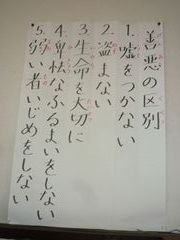 善悪の区別
1.嘘をつかない
2.盗まない
3.生命を大切に
4.卑怯なふるまいをしない
5.弱い者いじめをしない